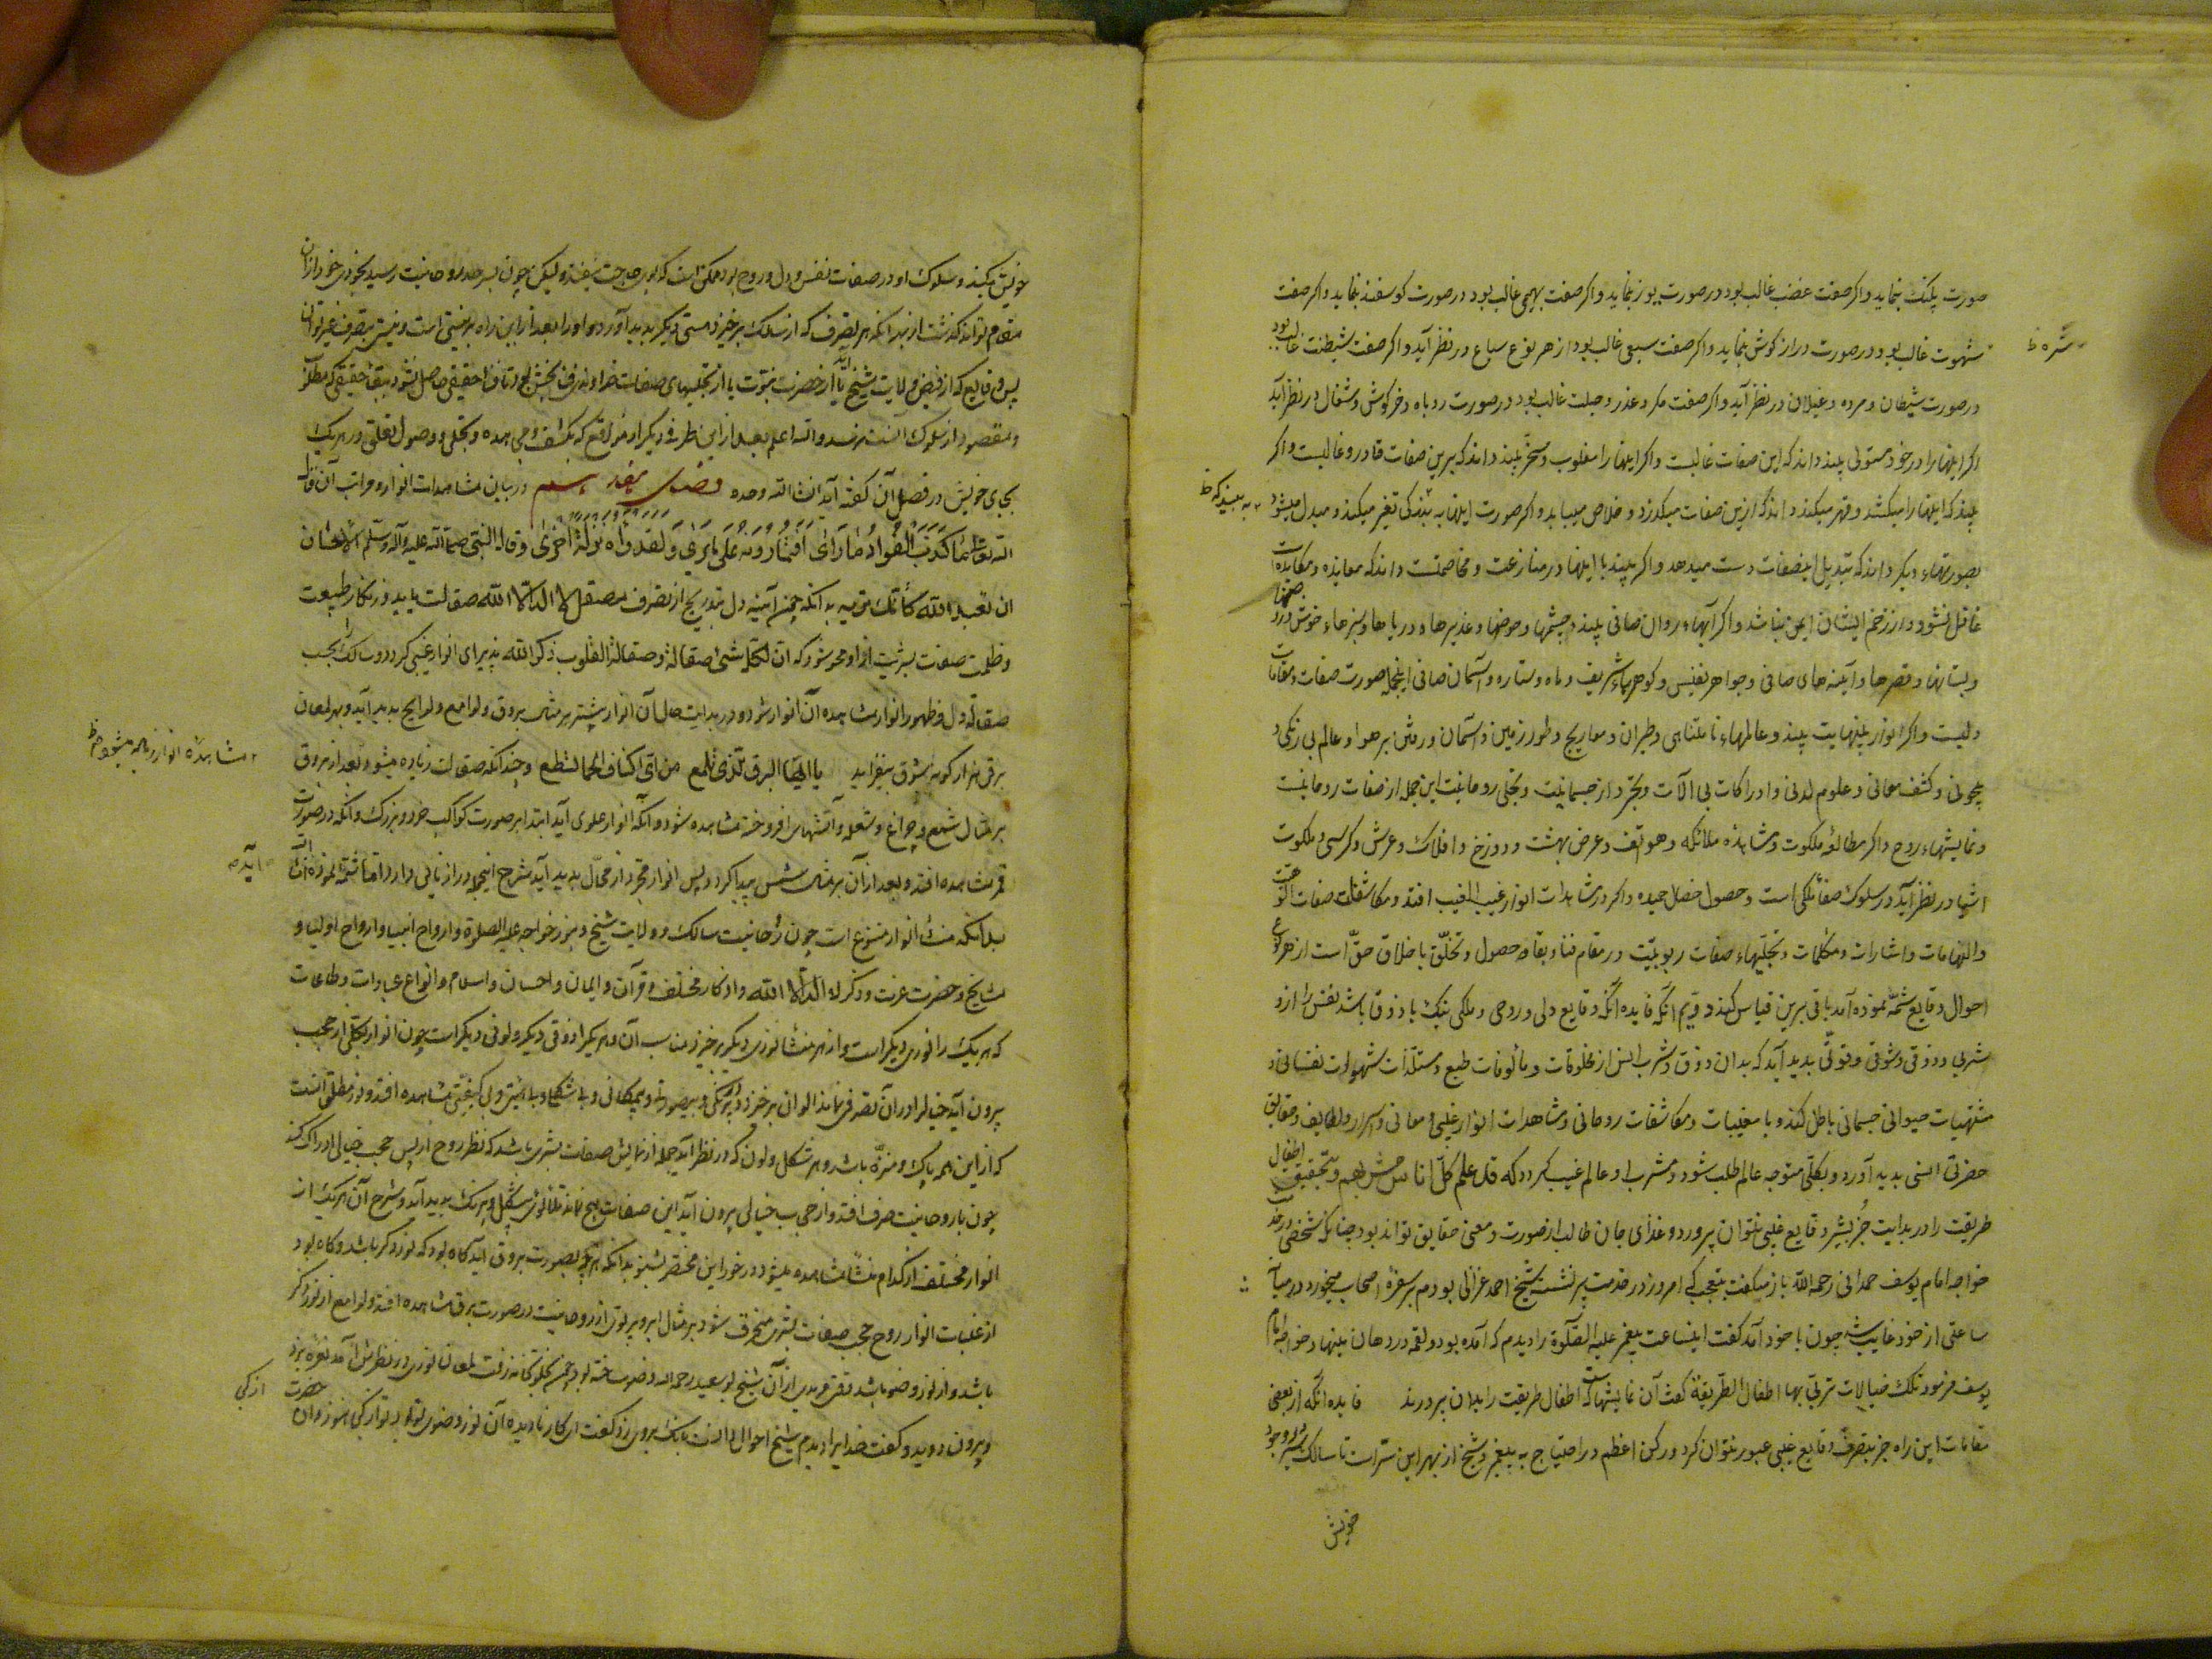 صورت پلنک نماید و اکر صفت غضب غالب بود در صورت یوز نماید و اکر صفت بهیمی غالب بود در صورت کوسفند نماید و اکر صفت
شهوت غالب بود در صورت دراز کوش نماید و اکر صفت سبعی غالب بود از هر نوع سباع در نظر آید و اکر صفت شیطنت غالب بود
در صورت شیطان و مرده و غیلان در نظر آید و اکر صفت مکر و غدر و حیلت غالب بود در صورت روباه و خرکوش و شغال در نظر آید
اکر اینها را در خود مستولی بیند داند که این صفات غالبست و اکر اینها را مغلوب و مسخر بیند داند که برین صفات قادر و غالبست و اکر
بیند که اینها را میکشد و قهر میکند داند که ازین صفات میکذرد و خلاص مییابد و اکر صورت اینها تغیر میکند و مبدل میشود
بصورتهاء دیکر داند که تبدیل این صفات دست میدهد و اکر بیند با اینها در منازعت و مخاصمتست داند که
غافل نشود و از زخم ایشان ایمن نباشد و اکر آبهاء روان صافی بیند و چشمها و حوضها و غدیرها و دریاها و سبزهاء خوش
و بستانها و قصرها و آینه های صافی و جواهر نفیس و کوهرهاء شریف و ماه و ستاره و آسمان صافی اینجمله صورت صفات و مقامات
دلیست و اکر انوار بینهایت بیند و عالمهاء نامتناهی و طیران و معاریج و طی زمین و آسمان و رفتن بر هوا و عالم بی رنکی و
بیچونی و کشف معانی و علوم لدنی و ادراکات بی آلات و تجرد از جسمانیت و تجلی روحانیت این جمله از صفات روحانیت
و نمایشهاء روح و اکر مطالعه ملکوت و مشاهده ملائکه و هواتف و عرض بهشت و دوزخ و افلاک و عرش و کرسی و ملکوت
اشیا در نظر آید در سلوک صفات ملکی است و حصول خصال حمیده و اکر در مشاهدات انوار غیب الغیب افتد و مکاشفات صفات الوهیت
و الهامات و اشارات و مکلمات و تجلیهاء صفات ربوبیت در مقام فنا و بقا و حصول و تخلق باخلاق حق است از هر نوع
احوال و قایع شمه نموده آمد باقی برین قیاس کند دویم آنکه فایده آنکه وقایع دلی و روحی و ملکی نیک با ذوق باشد نفس را ازو
شربی و ذوقی و شوقی و قوتی پدید آید که بدان ذوق و شرب انس از مخلوقات و مألوفات طبع و مستلذات شهوات نفسانی و
مشتهیات حیوانی جسمانی باطل کند و با مغیبات و مکاشفات روحانی و مشاهدات انوار غیبی و معانی و اسرار و لطایف و حقایق
حضرتی انسی پدید آورد و بکلی متوجه عالم طلب شود و مشرب او عالم غیب کردد که قد علم کل اناس مشربهم و بتحقیق اطفال
طریقت را در بدایت جز بشیر وقایع غیبی نتوان پرورد و غذای جان طالب از صورت و معنی حقایق تواند بود چنانکه شخصی در خدمت
خواجه امام یوسف همدانی رحمه الله باز میکفت بتعجب که امروز در خدمت شیخ احمد غزالی بودم بر سفره اصحاب میخورد در میانه
ساعتی از خود غایب شد چون با خود آمد کفت اینساعت پیغمبر علیه الصلوة را دیدم که آمده بود و لقمه در دهان من نهاد خواجه امام
یوسف فرمود تلک خیالات تربی بها اطفال الطریقة کفت آن نمایشهاست که اطفال طریقت را بدان پرورند فایده آنکه از بعضی
مقامات این راه جز بتصرف وقایع غیبی عبور نتوان کرد و رکن اعظم در احتیاج به پیغمبر و شیخ از بهر این سر است تا سالک
خویش
خویش میکند و سلوک او در صفات نفس و دل و روح بود ممکن است که چون بسرحد روحانیت رسید بخودی خود از آن
مقام نتواند کذشت از بهر آنکه هر تصرف که از سالک برخیزد هستی دیکر پدید آورد و او را بعد ازین راه بر نیستی است و نیستی بتصرف غیر توان
پس وقایع که از فیض ولایت شیخ یا از حضرت نبوت یا از تجلیهای صفات خداوندی
و مقصود از سلوک آنست برسد والله اعلم بعد ازین
بجای خویش در فصل آن کفته آید انشاء الله وحده فصل در بیان مشاهدات انوار و مراتب آن قال
الله تعالی ما کذب الفؤاد ما رأی افتمارونه علی ما یری ولقد رآه نزلة اخری وقال النبی صلی الله علیه وآله وسلم الاحسان
ان تعبد الله کأنک تریه بدانکه چون آینه دل بتدریج از تصرف مصقل لا اله الا الله صقالت یابد و زنکار طبیعت
و ظلمت صفات بشریت ازو محو شود که ان لکل شئ صقالة وصقالة القلوب ذکر الله پذیرای انوار غیبی کردد و سالک بحسب
صقالت دل و ظهور انوار مشاهده آن انوار شود و در بدایت حال آن انوار بیشتر بر مثال بروق و لوامع و لوایح پدید آید و بهر لمعان
برقی هزار کونه شوق بیفزاید یا ایها البرق الذی تلمع من ای اکناف الحمی تسطع و چندانکه صقالت زیاده میشود بعد از بروق
بر مثال شمع و چراغ و شعله و آتشهای افروخته مشاهده شود و آنکه انوار علوی آید ابتدا بر صورت کواکب خرد و بزرک و آنکه در صورت
قمر مشاهده افتد و بعد از آن بر مثال شمس پیدا کردد پس انوار مجرد از محال پدید آید
بدانکه منشأ انوار متنوع است چون روحانیت سالک و ولایت شیخ و نور خواجه علیه الصلوة و ارواح انبیا و ارواح اولیا و
مشایخ و حضرت عزت و ذکر لا اله الا الله و اذکار مختلف و قرآن و ایمان و احسان و اسلام و انواع عبادات و طاعات
که هر یک را نوری دیکر است و از هر منشأ نوری دیکر برخیزد مناسب آن و هر یک را ذوقی دیکر و لونی دیکر است چون انوار بکلی از حجب
بیرون آید خیال را در آن تصرفی نماند الوان برخیزد و بیرنکی و بیصورتی مشاهده افتد و نور مطلق آنست
که ازین همه پاک و منزه باشد و هر شکل و لون که در نظر آید جمله از آلایش صفات بشری باشد که نظر روح از پس حجب خیالی ادراک کند
چون با روحانیت صرف افتد و از حجب خیالی بیرون آید این صفات هیچ نماند تلألؤی بی شکل و بیرنک پدید آید و شرح آن هر یک از
انوار مختلف از کدام منشأ مشاهده میشود در خور این مختصر بشنو بدانکه هر چه بصورت بروق آید کاه بود که نور ذکر باشد و کاه بود
از غلبات انوار روح حجب صفات بشری منخرق شود بر مثال ابر و پرتوی از روحانیت در صورت برق مشاهده افتد و لوامع از نور ذکر
باشد و از نور وضو باشد وقتی مریدی از آن شیخ ابو سعید رحمه الله وضو ساخته بود چون بخلوتخانه رفت لمعان نوری در نظرش آمد نعره بزد
و بیرون دوید و کفت خدایرا دیدم شیخ احوال دانست بانک بروی زد کفت ای کار نادیده آن نور وضوی تو بود تو از کجا هنوز و آن حضرت
از کجا
مشاهده انوار زیاده میشود ظ
آید